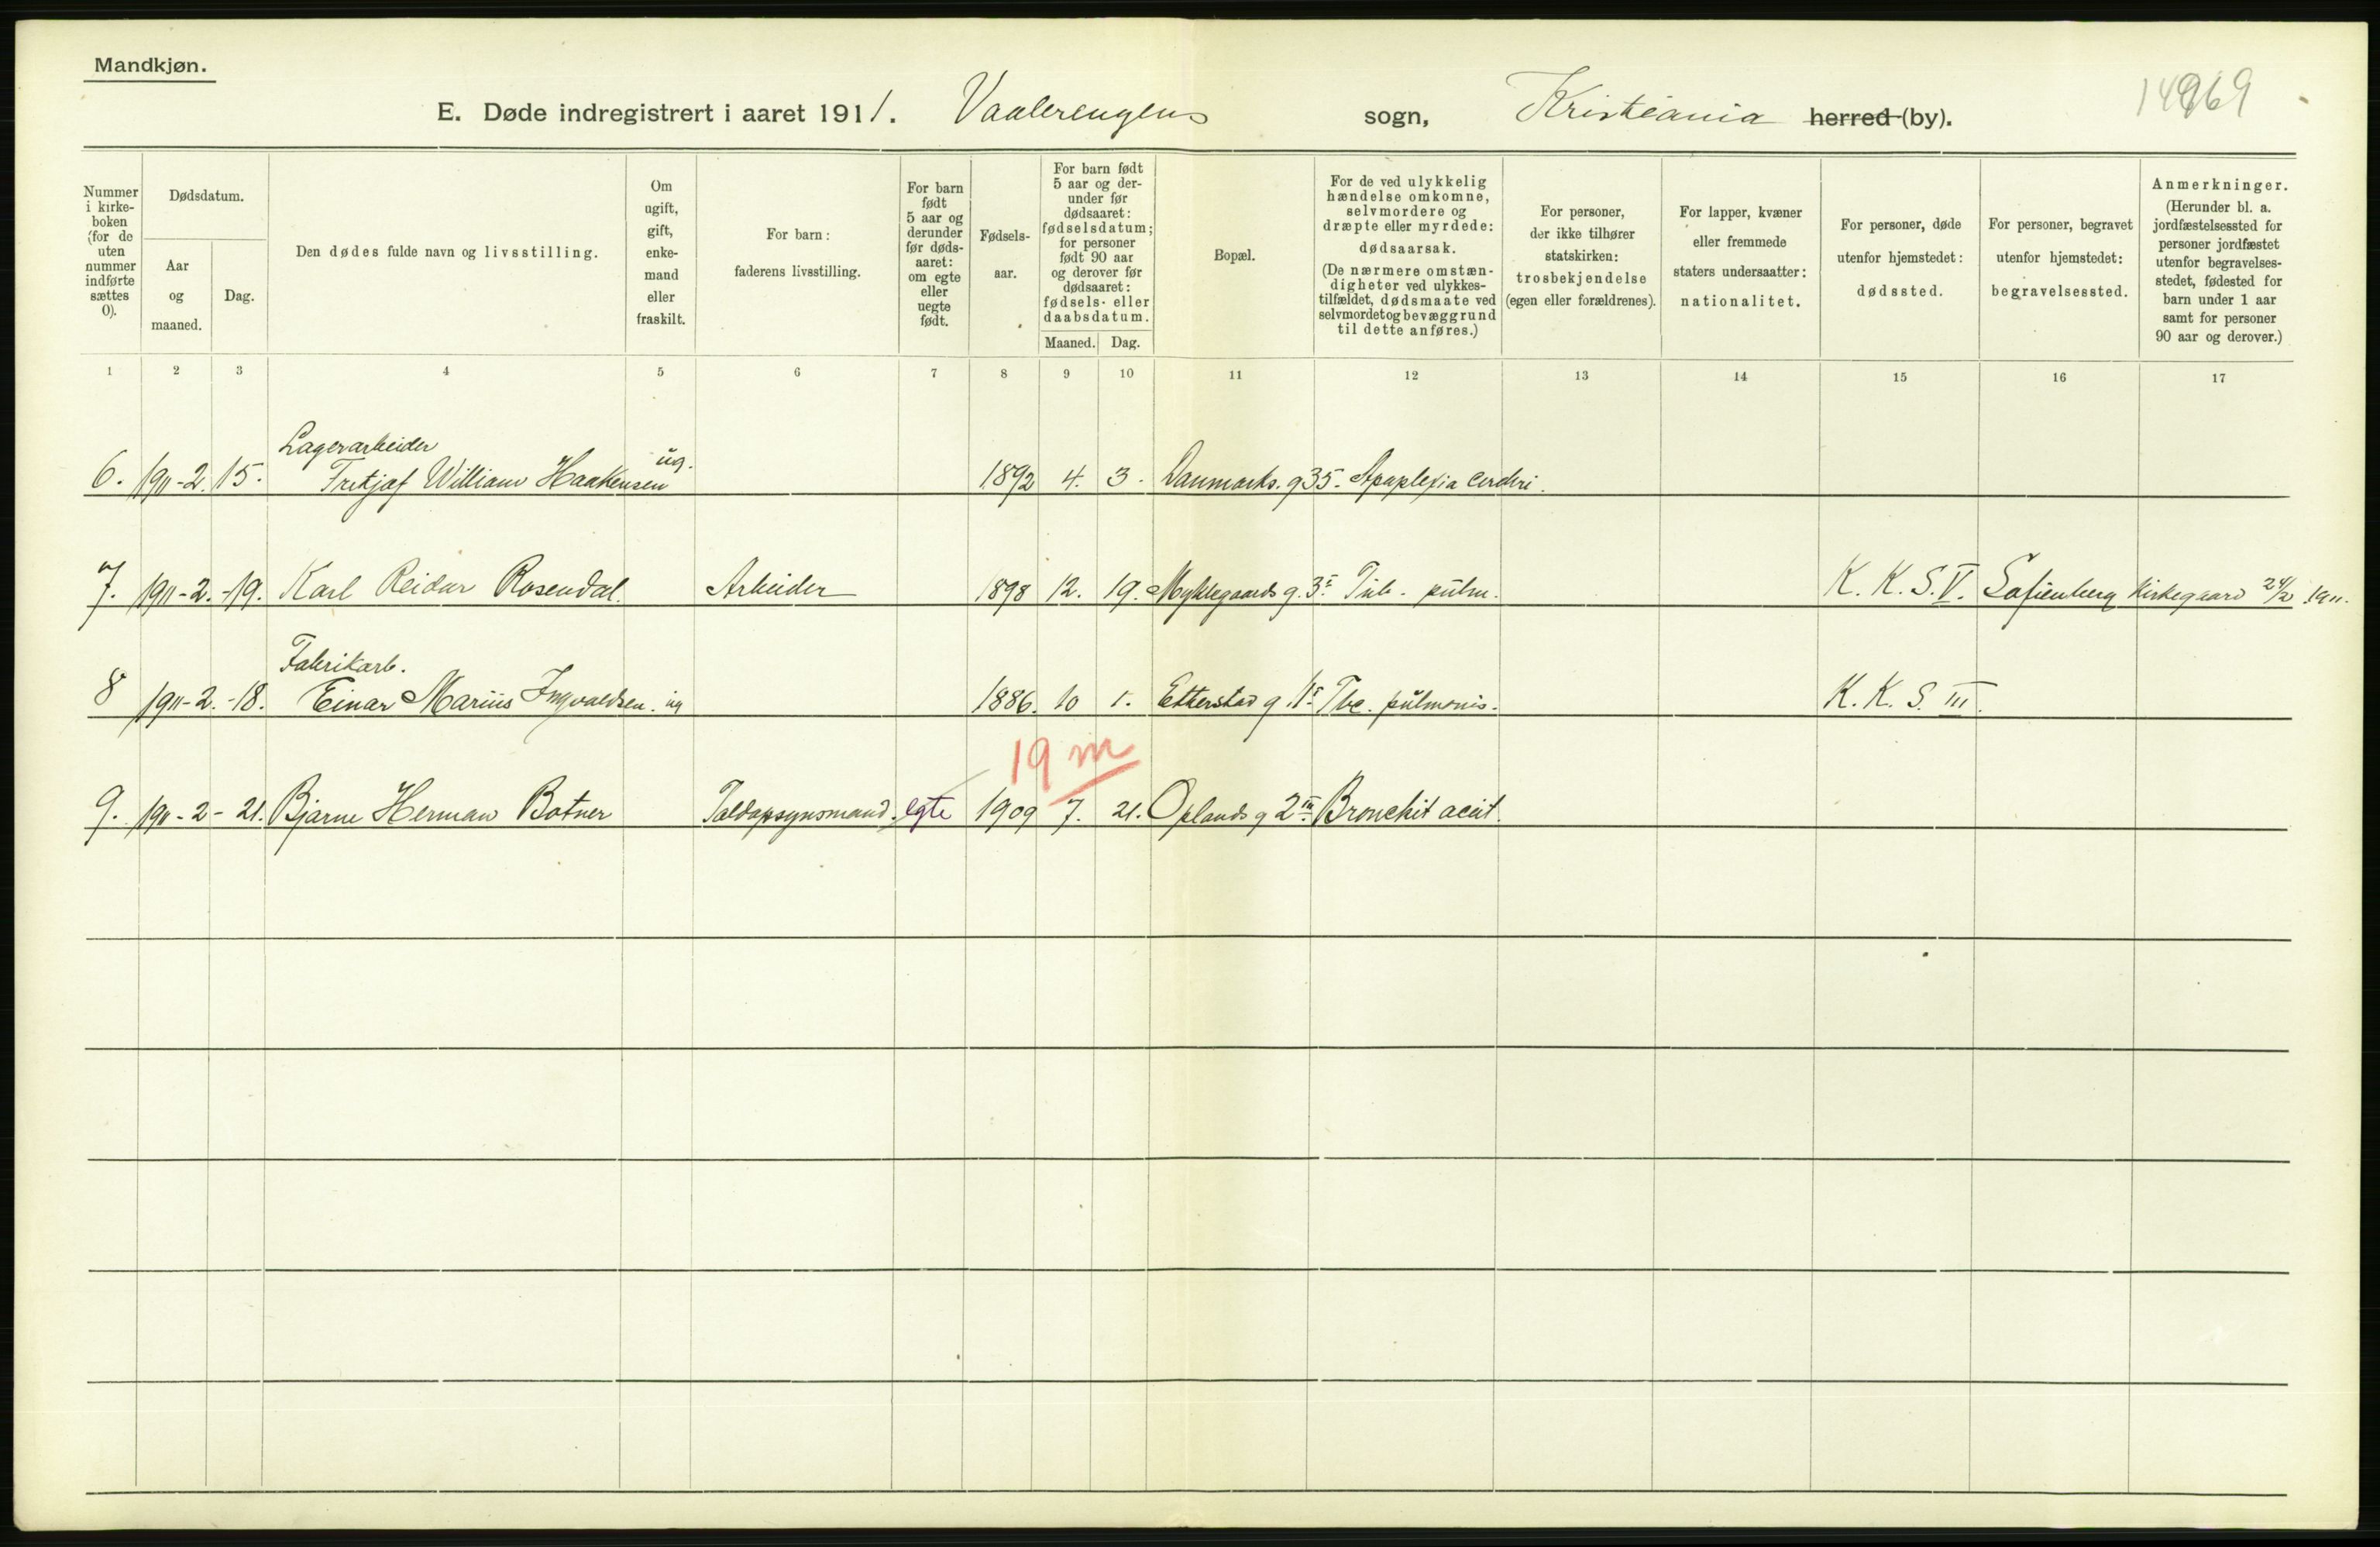 Mandkjøn.
E. Døde indregistrert i aaret 1911. Vaalerengens sogn, Kristiania herred (by).
14969
Nummer i kirke-boken (for de uten nummer indførte sættes 0).
Dødsdatum.
Aar og maaned.
Dag.
Den dødes fulde navn og livsstilling.
Om ugift, gift, enke-mand eller fraskilt.
For barn: faderens livsstilling.
For barn født 5 aar og derunder før døds-aaret: om egte eller uegte født.
Fødsels-aar.
For barn født 5 aar og der-under før dødsaaret: fødselsdatum; for personer født 90 aar og derover før dødsaaret: fødsels- eller daabsdatum.
Maaned. Dag.
Bopæl.
For de ved ulykkelig hændelse omkomne, selvmordere og dræpte eller myrdede: dødsaarsak. (De nærmere omstæn-digheter ved ulykkes-tilfældet, dødsmaate ved selvmordet og bevæggrund til dette anføres.)
For personer, der ikke tilhører statskirken: trosbekjendelse (egen eller forældrenes).
For lapper, kvæner eller fremmede staters undersaatter: nationalitet.
For personer, døde utenfor hjemstedet: dødssted.
For personer, begravet utenfor hjemstedet: begravelsessted.
Anmerkninger. (Herunder bl. a. jordfæstelsessted for personer jordfæstet utenfor begravelses-stedet, fødested for barn under 1 aar samt for personer 90 aar og derover.)
1 2 3 4 5 6 7 8 9 10 11 12 13 14 15 16 17
Lagerarbeider
6. 1911-2. 15. Fritjof William Haakensen ug. 1892 4. 3. Danmarks. g 35. Apoplexia cerebri.
7. 1911-2. -19. Karl Reidar Rosendal. Arbeider 1898 12. 19. Myklegaards g. 3I Tub. pulm. K. K. S. V. Sofienberg Kirkegaard 24/2 1911.
Fabrikarb.
8 1911-2. -18. Einar Marius Ingvaldsen. ug 1886. 10 1. Etterstad g 1I Tbc. pulmonis. K. K. S. III.
19 m
9. 1911-2- 21. Bjarne Herman Botner Toldopsynsmand. egte 1909 7. 21. Oplands g 2III Bronchit acut.